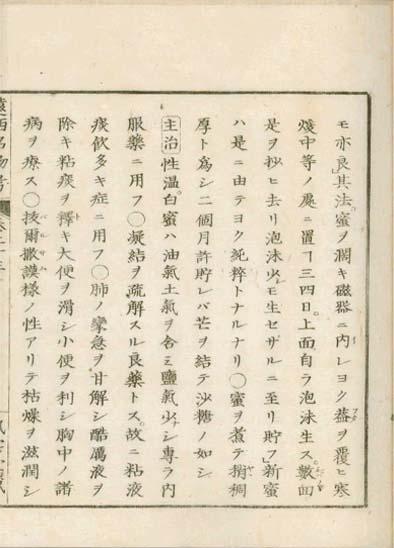 モ亦良」其法。蜜ヲ濶キ磁器ニ内レヨク蓋ヲ覆ヒ寒
煖中等ノ處ニ置ヿ三四日。上面自ラ泡沫生ス。數回
是ヲ抄ヒ去リ泡沫少モ生セザルニ至リ貯フ」新蜜
ハ是ニ由テヨク純粹トナルナリ〇蜜ヲ煮テ稍稠
厚ト爲シ二個月許貯レバ芒ヲ結テ沙糖ノ如シ
主治 性溫。白蜜ハ油氣土氣ヲ含ミ鹽氣少シ專ラ内
服藥ニ用フ〇凝結ヲ疏解スル良藥トス。故ニ粘液
痰飲多キ症ニ用フ〇肺ノ攣急ヲ甘解シ酷厲液ヲ
除キ粘痰ヲ釋キ大便ヲ滑シ小便ヲ利シ胸中ノ諸
病ヲ療ス〇抜爾撒謨樣ノ性アリテ枯燥ヲ滋潤シ
遠西名物考